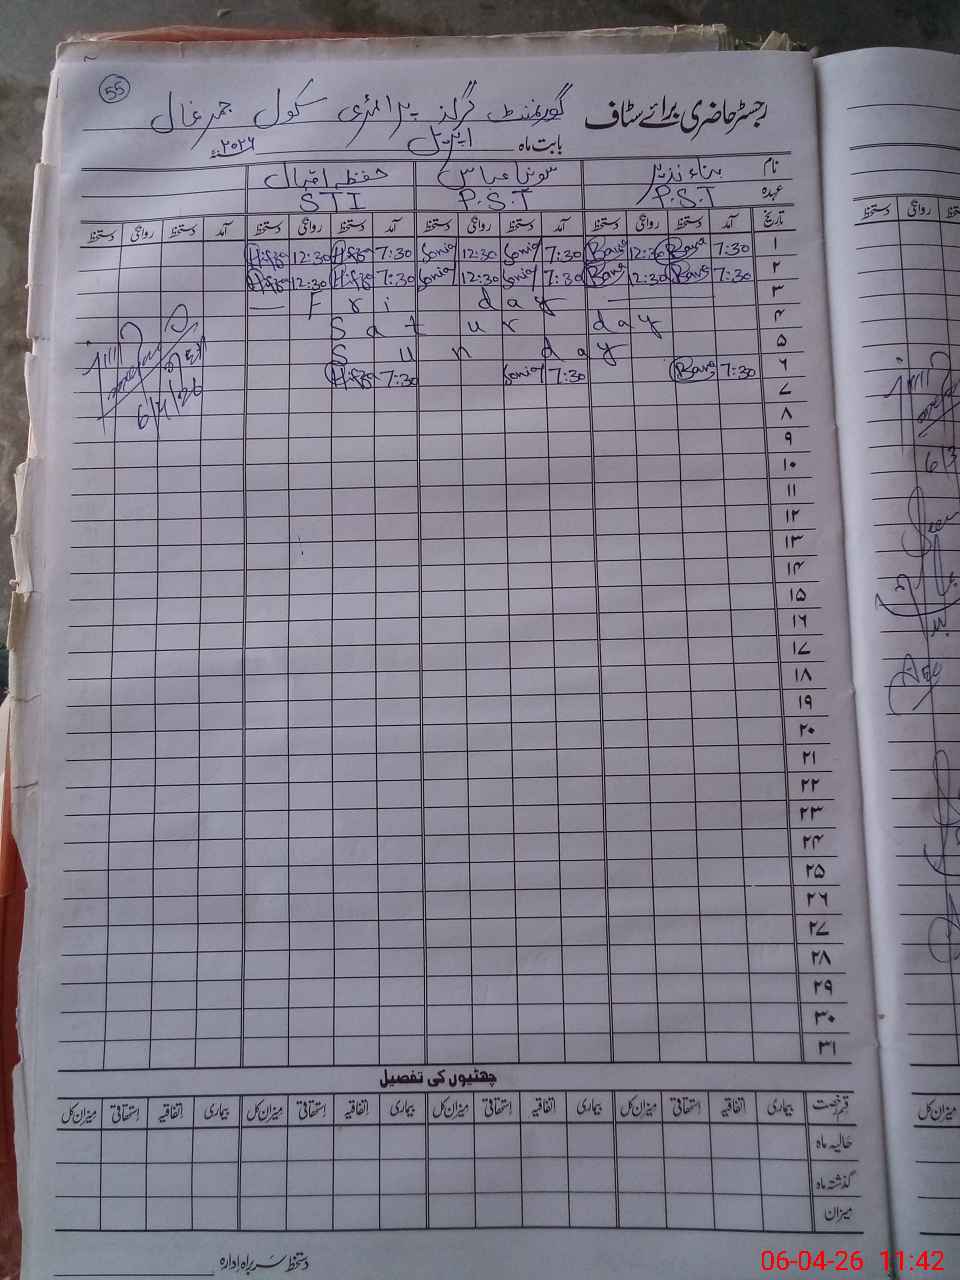 55
رجسٹر حاضری برائے سٹاف گورنمنٹ گرلز پرائمری سکول
بابت ماہ اپریل ۲۰۲۶ء
نام ثناء نذیر سونیا عباس حفظہ اقبال
عہدہ P.S.T P.S.T STI
تاریخ آمد دستخط روانگی دستخط آمد دستخط روانگی دستخط آمد دستخط روانگی دستخط آمد دستخط روانگی دستخط
۱ 7:30 12:30 7:30 Sonia 12:30 Sonia 7:30 Hifza 12:30 Hifza
۲ 7:30 12:30 7:30 Sonia 12:30 Sonia 7:30 Hifza 12:30 Hifza
۳ Friday
۴ Saturday
۵ Sunday
۶ 7:30 7:30 Sonia 7:30 Hifza
۷
۸
۹
۱۰
۱۱
۱۲
۱۳
۱۴
۱۵
۱۶
۱۷
۱۸
۱۹
۲۰
۲۱
۲۲
۲۳
۲۴
۲۵
۲۶
۲۷
۲۸
۲۹
۳۰
۳۱
6/4/26
چھٹیوں کی تفصیل
قسم رخصت بیماری اتفاقیہ استحقاقی میزان کل بیماری اتفاقیہ استحقاقی میزان کل بیماری اتفاقیہ استحقاقی میزان کل بیماری اتفاقیہ استحقاقی میزان کل
حالیہ ماہ
گذشتہ ماہ
میزان
دستخط سربراہ ادارہ
روانگی
میزان کل
06-04-26 11:42